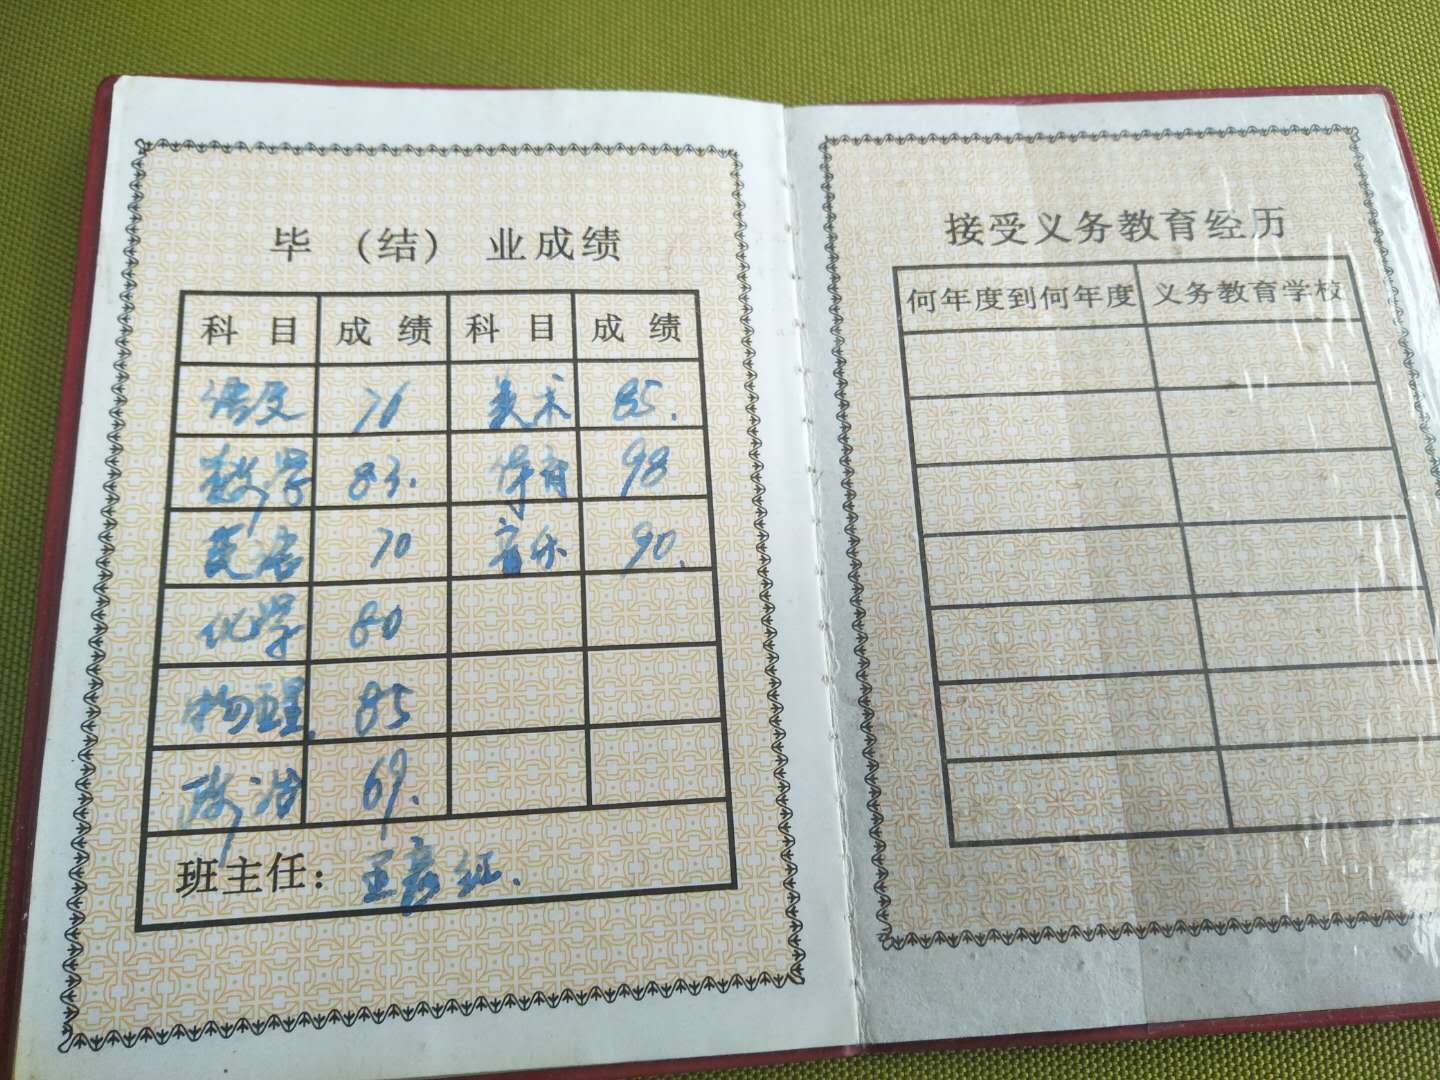 毕（结）业成绩
科目 成绩 科目 成绩
语文 76 美术 85.
数学 83. 体育 98
英语 70 音乐 90.
化学 80
物理 85
政治 69.
班主任： 王彦红.
接受义务教育经历
何年度到何年度 义务教育学校